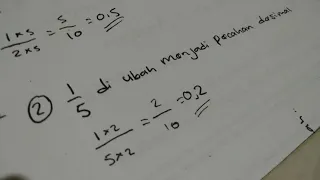 1×5/2×5 = 5/10 = 0,5
② 1/5 di ubah menjadi pecahan desimal
1×2/5×2 = 2/10 = 0,2